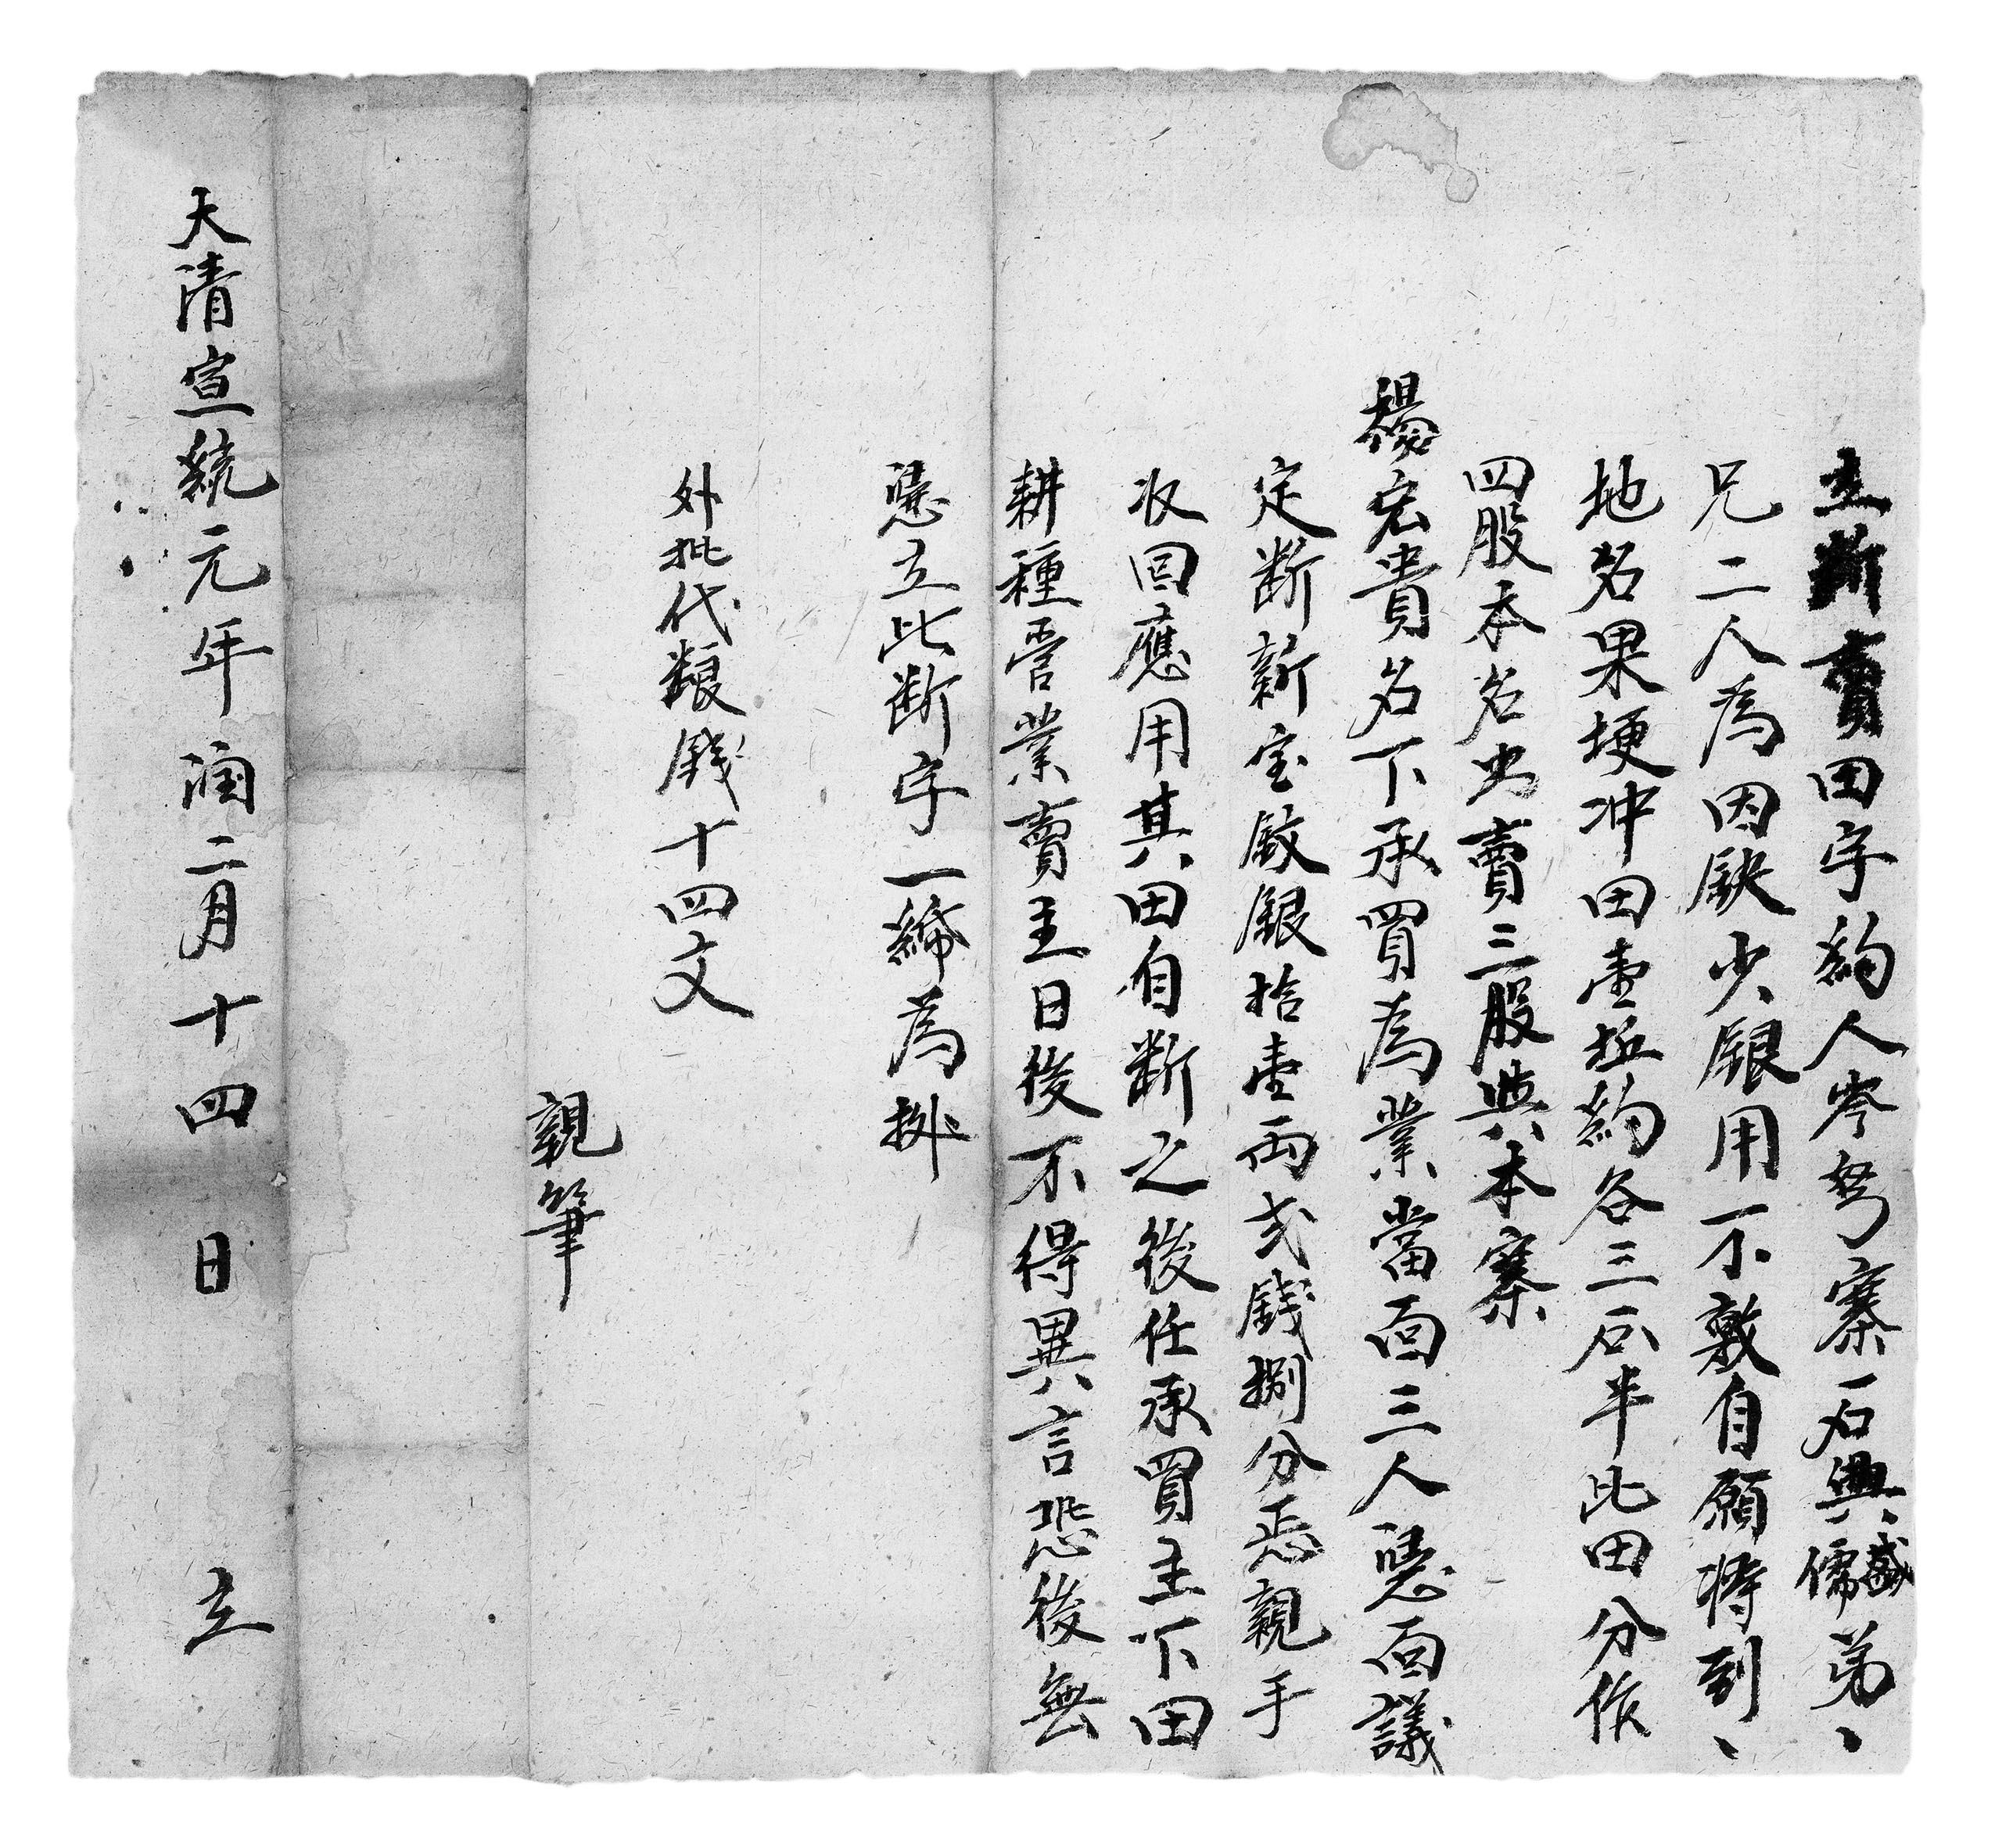 立斷賣田字約人岑弩寨石興儒盛弟丶
兄二人為因缺少銀用不敷自願將到丶
地名果埂冲田壹坵約谷三石半比田分作
四股本名出賣三股與本寨
楊宏貴名下承買為業當面三人憑面議
定斷新宝紋銀拾壹両弍錢捌分悉親手
收回應用其田自断之後任承買主下田
耕種管業賣主日後不得異言恐後無
憑立此断字一紙為拠
外批代粮錢十四文
親筆
大清宣統元年潤二月十四日 立